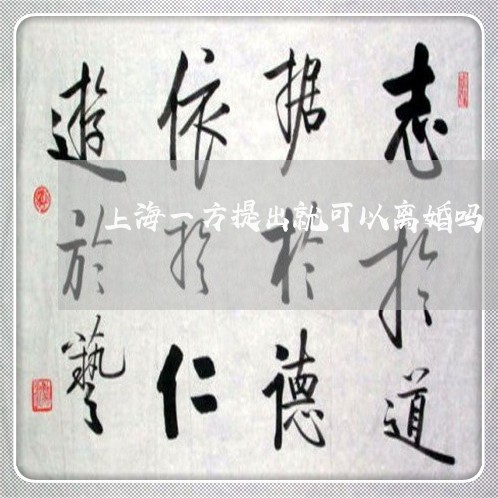 志扵道
据於德
依扵仁
遊於藝
上海一方提出就可以离婚吗